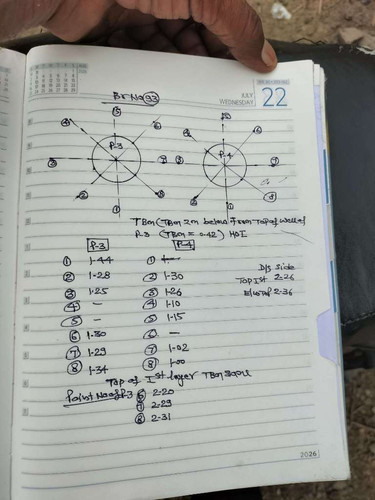 JULY
WEDNESDAY
22
Br No 93
5
4
6
P-3
3
7
2
8
1
5
4
6
P-4
3
7
2
8
1
TBM (TBM 2m below from Top of well of
P-3 (TBM = 0.42) HOI
P-3 P-4
1 1.44 1 —
2 1.28 2 1.30
3 1.25 3 1.26
4 — 4 1.10
5 — 5 1.15
6 1.30 6 —
7 1.29 7 1.02
8 1.34 8 1.00
D/s side
Top Ist 2.26
2.36
Top of Ist layer TBM
Point No of P-3 6 2.20
7 2.29
8 2.31
2026